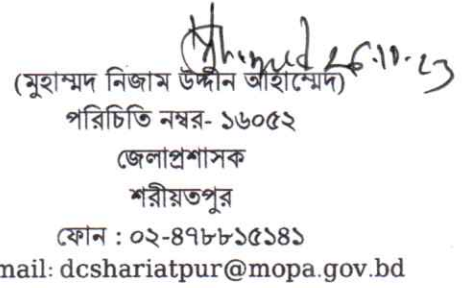 Ahamed 26.10.23
(মুহাম্মদ নিজাম উদ্দীন আহাম্মেদ)
পরিচিতি নম্বর- ১৬০৫২
জেলাপ্রশাসক
শরীয়তপুর
ফোন : ০২-৪৭৮৮১৫১৪১
mail: dcshariatpur@mopa.gov.bd